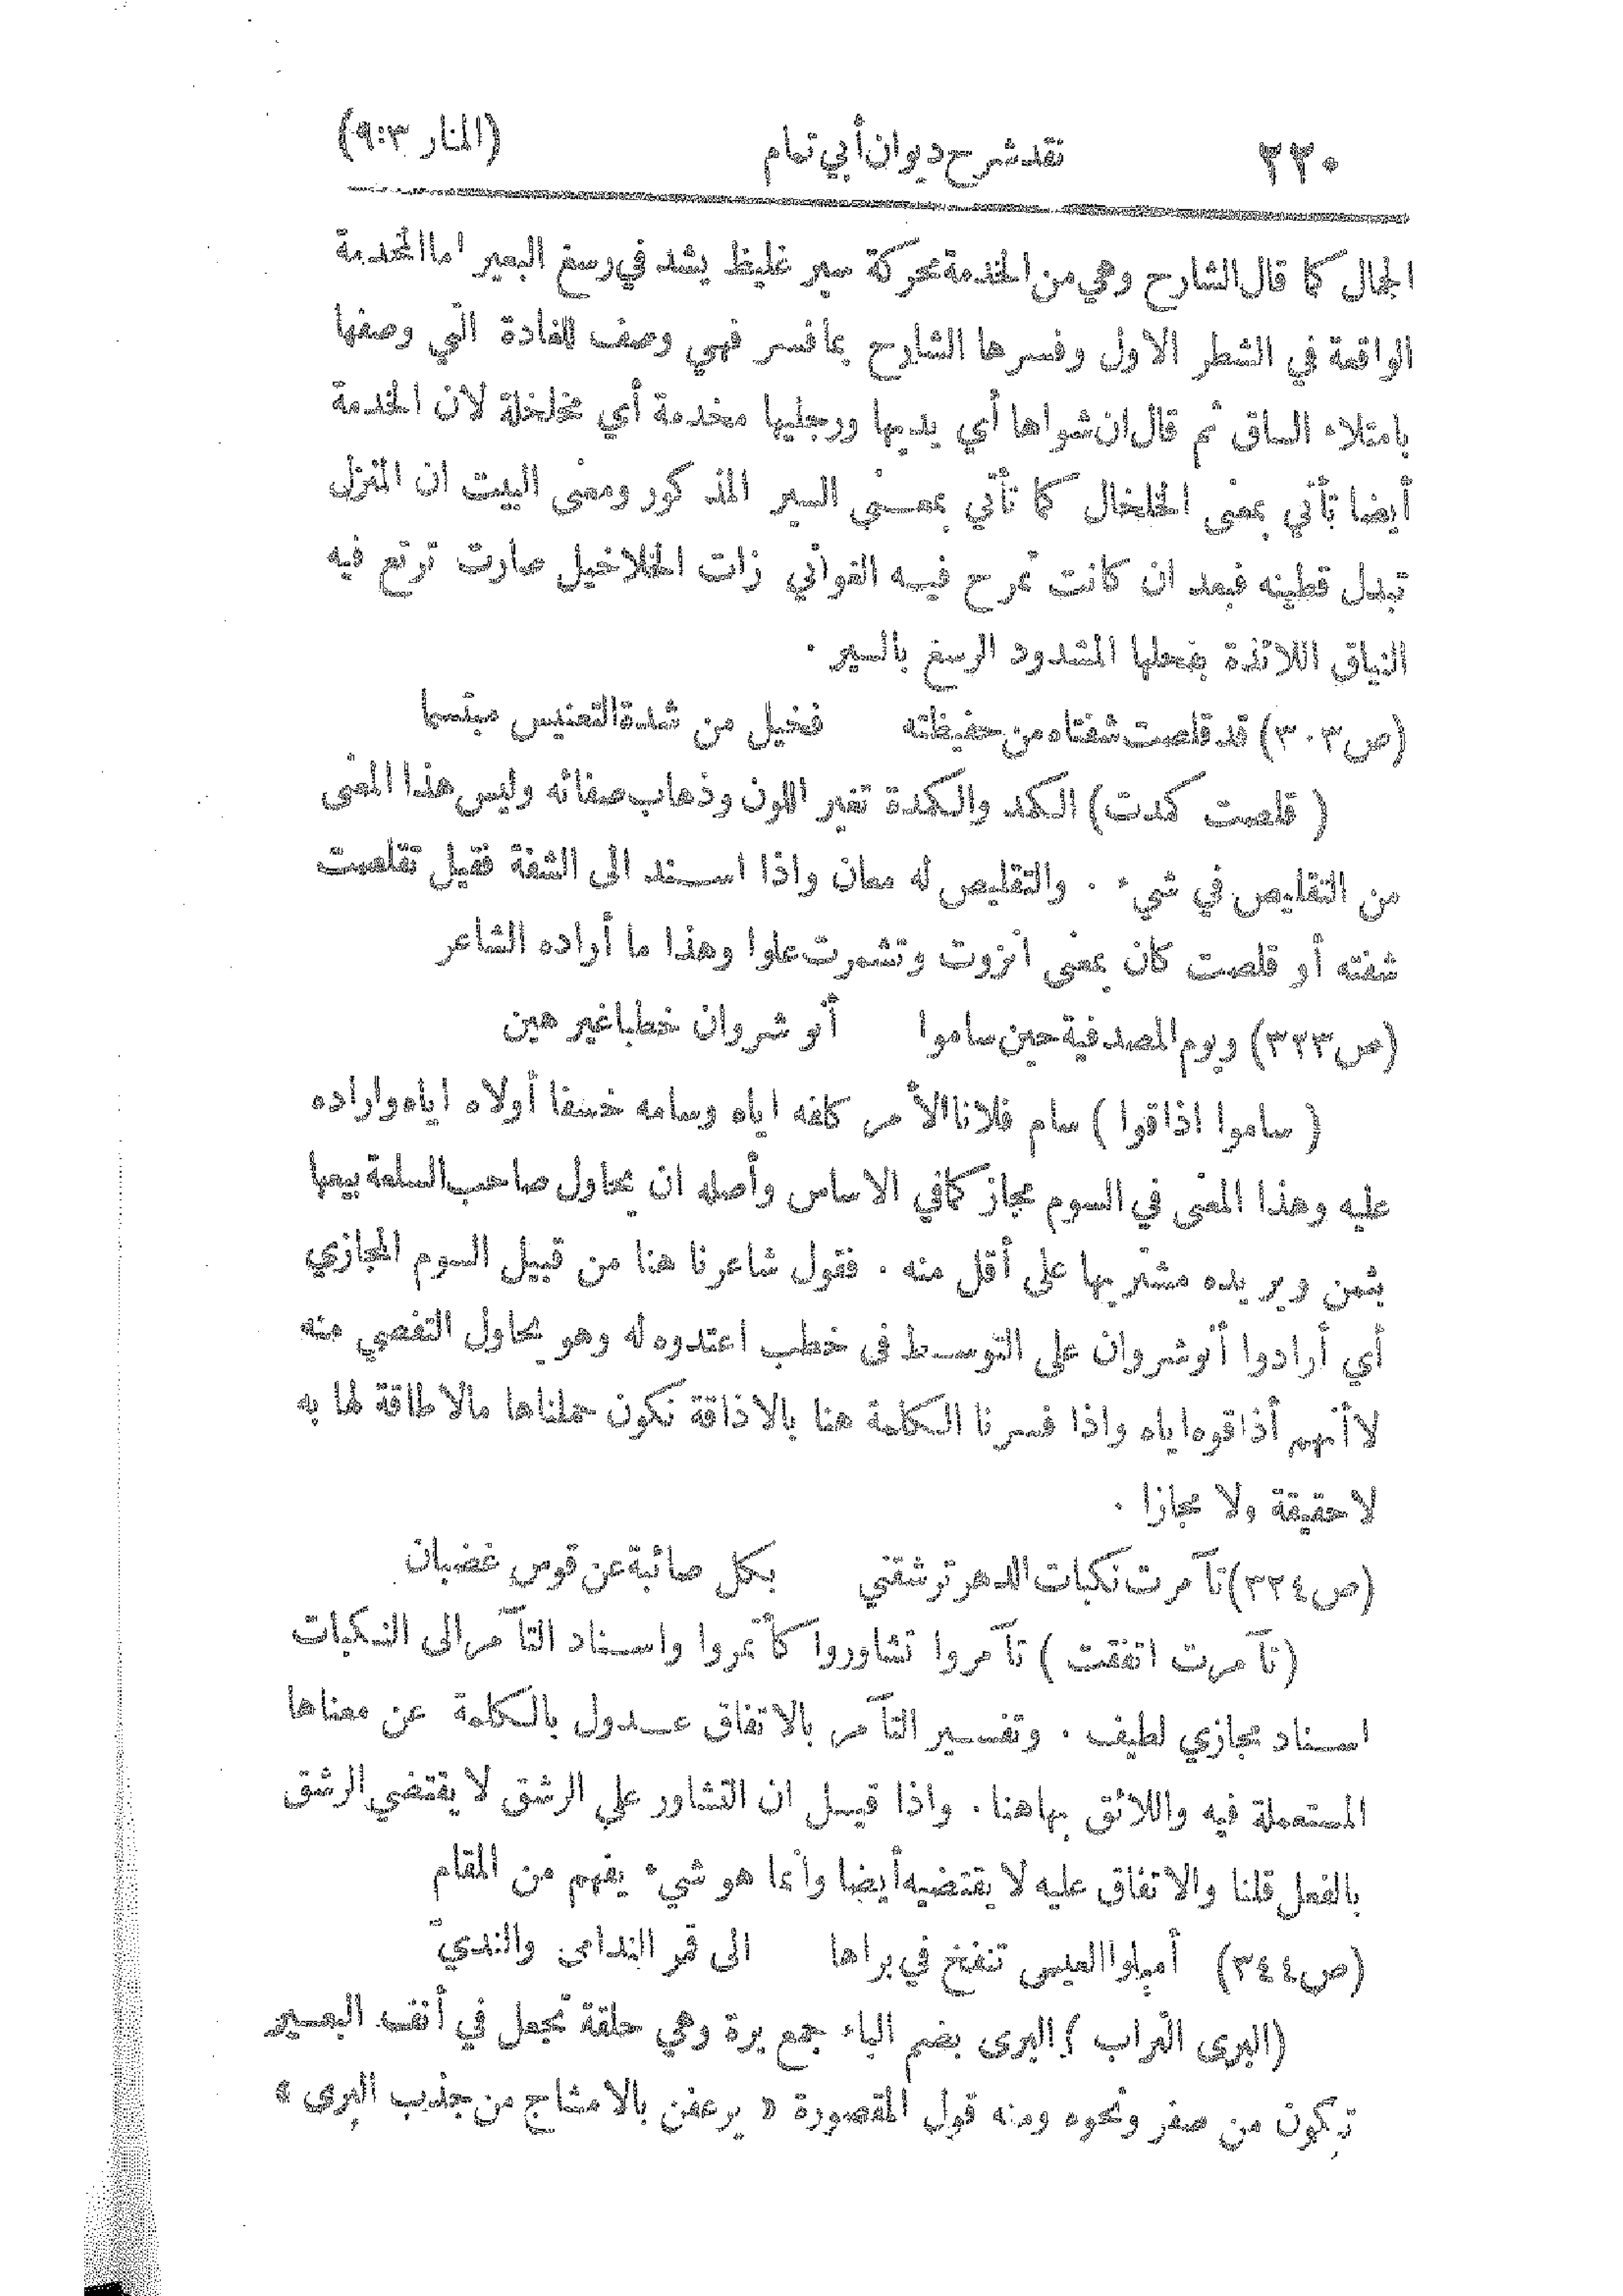 ٢٢٠ نقد شرح ديوان أبي تمام (المنار ٩:٣)
الجمال كما قال الشارح وهي من الخدمة محركة سير غليظ يشد في رسغ البعير اما المخدمة
الواقعة في الشطر الاول وفسرها الشارح بما فسر فهي وصف للغادة التي وصفها
بامتلاء الساق ثم قال ان شواها أي يديها ورجليها مخدمة أي مخلخلة لان الخدمة
أيضا تأتي بمعنى الخلخال كما تأتي بمعنى السير المذكور ومعنى البيت ان المنزل
تبدل قطينه فبعد ان كانت تمرح فيه الغواني ذات الخلاخيل صارت ترتع فيه
النياق اللائذة بفحلها المشدود الرسغ بالسير .
(ص٣٠٣) قد قلصت شفتاه من حفيظته فخيل من شدة التعنيس مبتسما
( قلصت كمدت) الكمد والكمدة تغير اللون وذهاب صفائه وليس هذا المعنى
من التقليص في شيء . والتقليص له معان واذا اسند الى الشفة فقيل تقلصت
شفته أو قلصت كان بمعنى انزوت وتشمرت علوا وهذا ما أراده الشاعر
(ص٣٢٣) ويوم المصدفية حين ساموا أنو شروان خطبا غير هين
( ساموا اذاقوا ) سام فلانا الأمر كلفه اياه وسامه خسفا أولاه اياه واراده
عليه وهذا المعنى في السوم مجاز كما في الاساس وأصله ان يحاول صاحب السلعة بيعها
بثمن ويريده مشتريها على أقل منه . فقول شاعرنا هنا من قبيل السوم المجازي
أي أرادوا أنوشروان على التوسط في خطب اعتدوه له وهو يحاول التفصي منه
لا أنهم أذاقوه اياه واذا فسرنا الكلمة هنا بالاذاقة نكون حملناها مالا طاقة لها به
لا حقيقة ولا مجازا .
(ص٣٢٤) تآمرت نكبات الدهر ترشقني بكل صائبة عن قوس غضبان
(تآمرت اتفقت ) تآمروا تشاوروا كأتمروا واسناد التآمر الى النكبات
اسناد مجازي لطيف . وتفسير التآمر بالاتفاق عدول بالكلمة عن معناها
المستعملة فيه واللائق بها هنا . واذا قيل ان التشاور على الرشق لا يقتضي الرشق
بالفعل قلنا والاتفاق عليه لا يقتضيه أيضا وانما هو شيء يفهم من المقام
(ص٣٤٤) أميلوا العيس تنفخ في براها الى قمر الندامى والنديّ
(البرى التراب ) البرى بضم الباء جمع برة وهي حلقة تجعل في أنف البعير
تكون من صفر ونحوه ومنه قول المقصورة « يرعفن بالامشاج من جذب البرى »